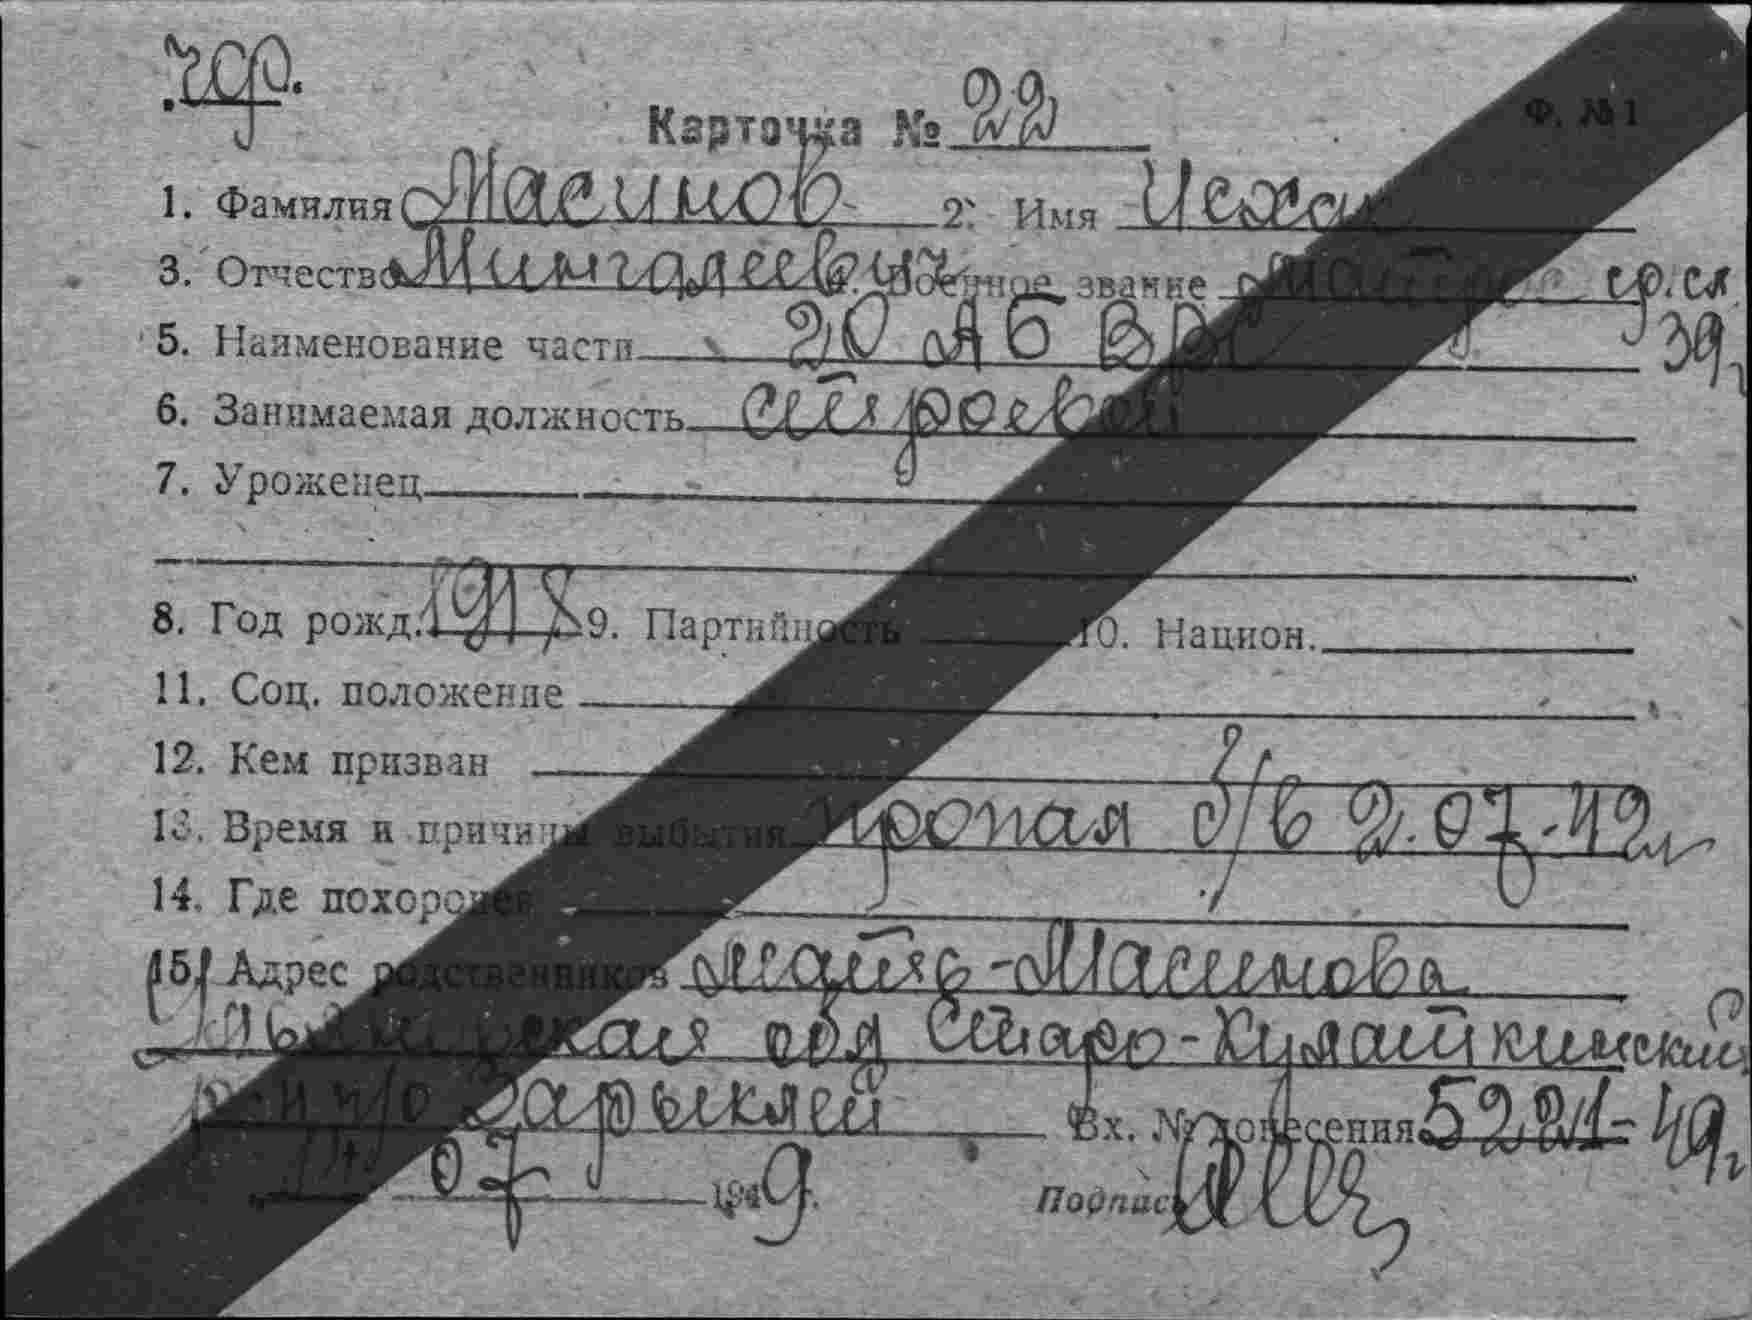 Карточка № 22
Ф. № 1
1. Фамилия Масимов 2. Имя Исхак
3. Отчество Мингалеевич Военное звание ср. сл.
5. Наименование части 20 АБ 39г
6. Занимаемая должность стрелковой
7. Уроженец
8. Год рожд. 1918 9. Партийность 10. Национ.
11. Соц. положение
12. Кем призван
13. Время и причины выбытия пропал б/в 2.07.42г
14. Где похоронен
15. Адрес родственников мать - Масимова
обл Старо-Кулаткинский
р-н п/о Зарыклей Вх. № донесения 5221-49г
07 1949.
Подпись